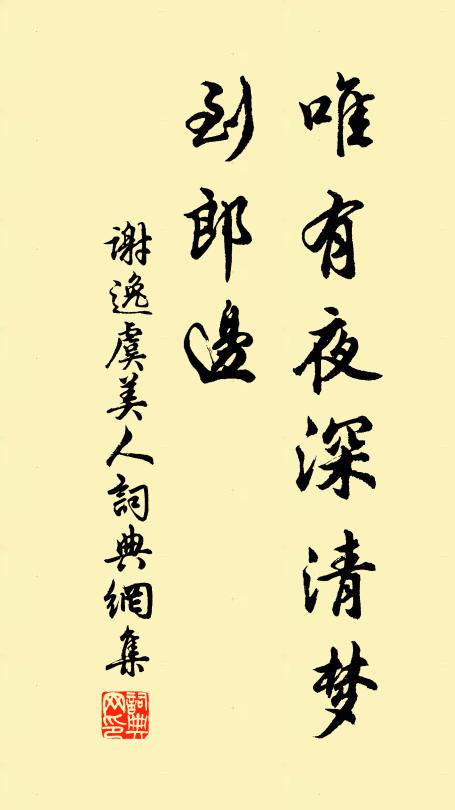 唯有夜深清梦
到郎邊
謝逸虞美人詞典網集
詞典
网印